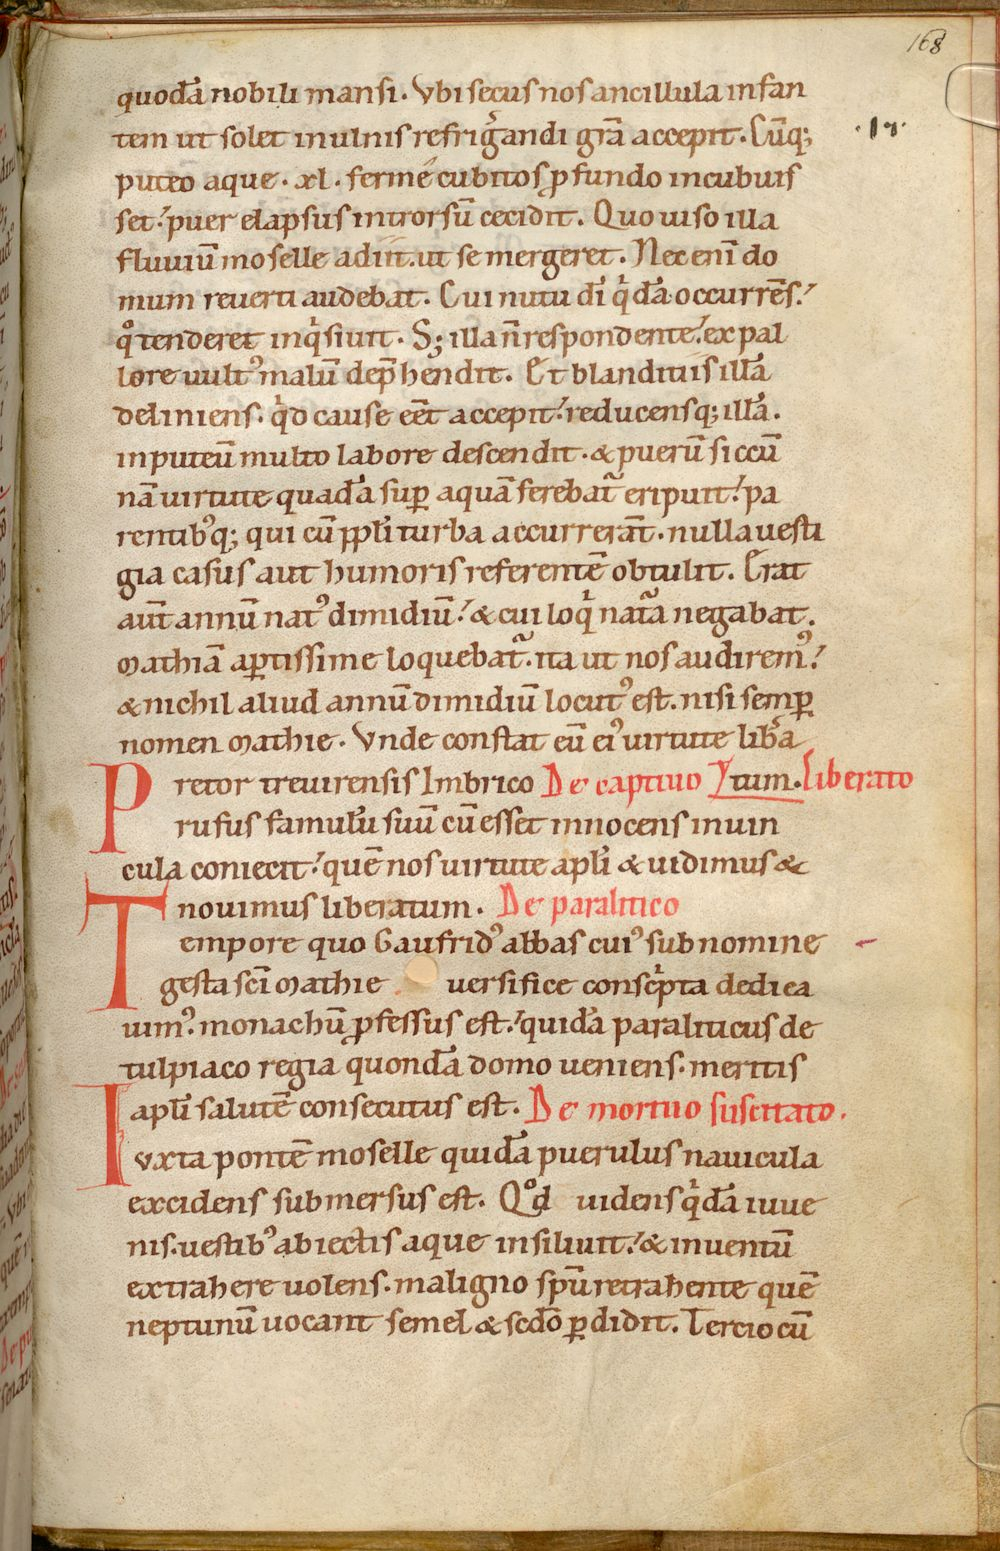 168
quodā nobili mansi. Vbi secus nos ancillula infan
tem ut solet in ulnis refrigͣandi grā accepit. Cūq;
·17·
puteo aque · xl · ferme cubitos ꝓfundo incubuis
set? puer elapsus introrsū cecidit. Quo uiso illa
fluuiū moselle adiit. ut se mergeret. Nec enī do
mum reuerti audebat. Cui nutu dī qͥdā occurrēs?
qͦ tenderet inqͥsiuit. S; illa n̄ respondente? ex pal
lore uultꝰ malū dep̄hendit. Et blanditiis illā
deliniens. qͥd cause eēt accepit? reducensq; illā.
in puteū multo labore descendit. & puerū siccū
nā uirtute quadā suꝑ aquā ferebat᷑ eripuit? pa
rentibꝰq; qui cū ppl̄i turba accurrerāt. nulla uesti
gia casus aut humoris referentē obtulit. Erat
aūt annū natꝰ dimidiū? & cui loqͥ natͣa negabat.
mathiā aꝑtissime loquebat᷑. ita ut nos audiremꝰ?
& nichil aliud annū dimidiū locutꝰ est. nisi semꝑ
nomen mathie. Vnde constat eū eiꝰ uirtute libͣa
Pretor treuirensis Imbrico De captiuo tum. Liberato
rufus famulū suū cū esset innocens in uin
cula coniecit? quē nos uirtute apl̄i & uidimus &
nouimus liberatum. De paralitico
Tempore quo Gaufridꝰ abbas cuiꝰ sub nomine
gesta scī mathie uersifice conscͥpta dedica
uimꝰ. monachū ꝓfessus est? quidā paraliticus de
tulpiaco regia quondā domo ueniens. meritis
apl̄i salutē consecutus est. De mortuo suscitato.
Iuxta pontē moselle quidā puerulus nauicula
excidens submersus est. Qͦd uidens qͥdā iuue
nis. uestibꝰ abiectis aque insiliuit? & inuentū
extrahere uolens. maligno spū retrahente quē
neptunū uocant semel & scdo ꝑdidit. Tercio cū